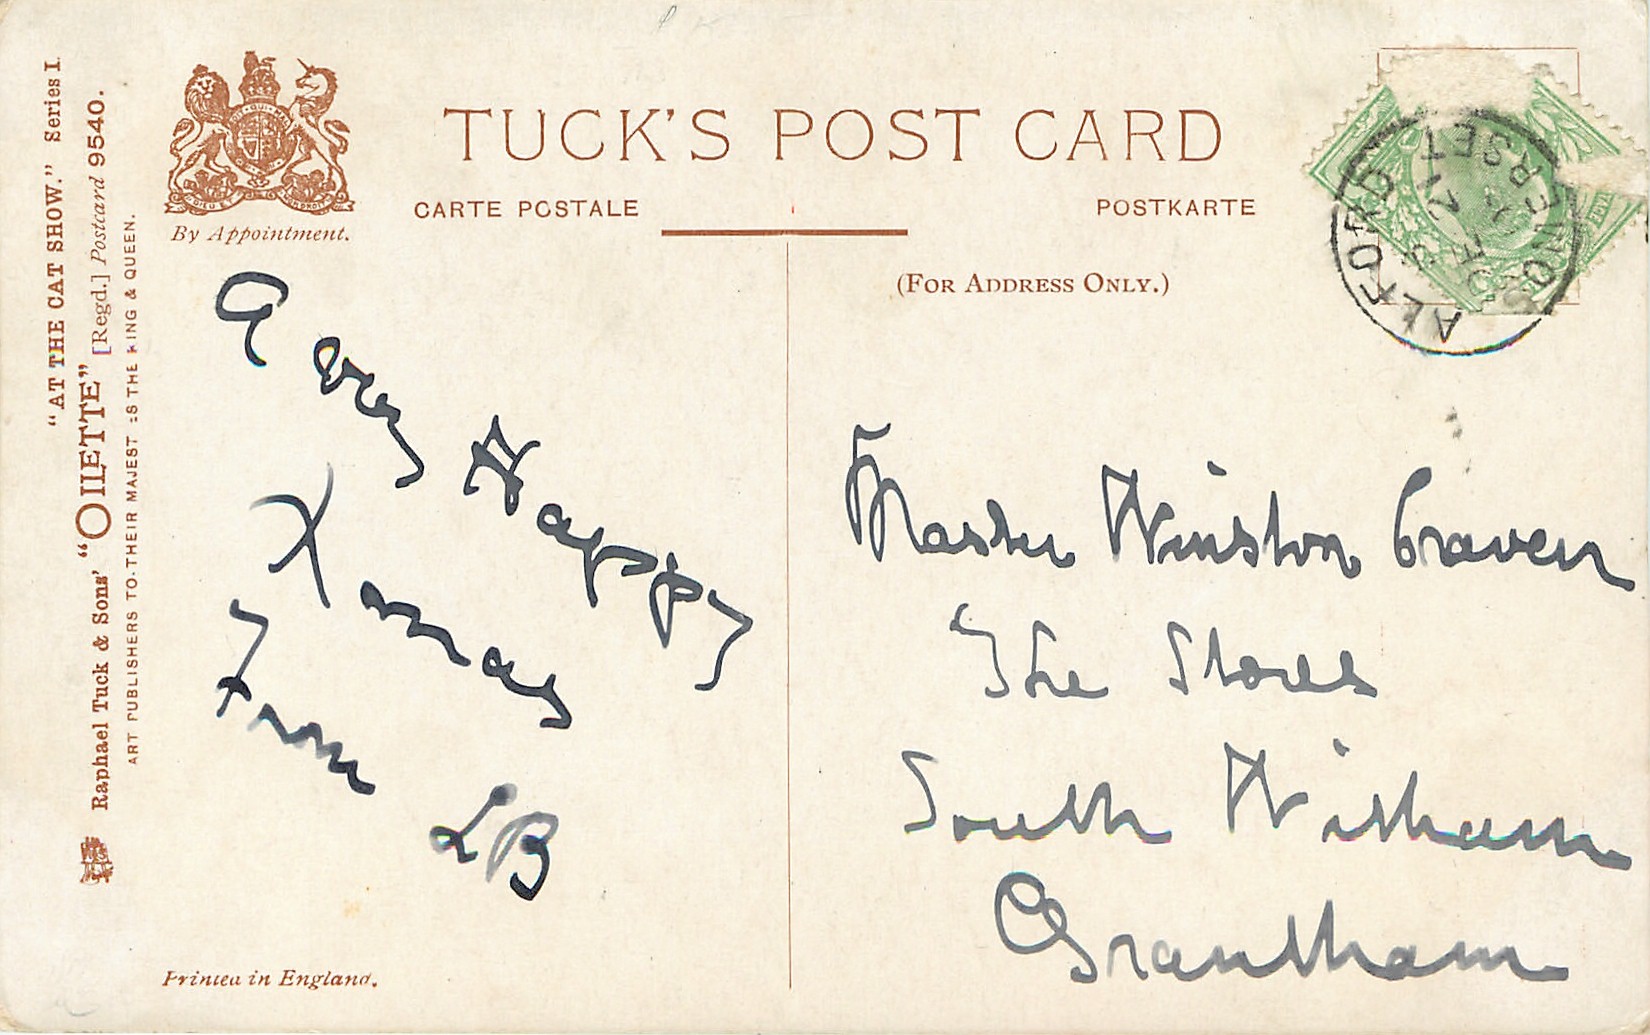 "AT THE CAT SHOW." Series I.
Raphael Tuck & Sons' "OILETTE" [Regd.] Postcard 9540.
ART PUBLISHERS TO THEIR MAJESTIES THE KING & QUEEN.
By Appointment.
TUCK'S POST CARD
CARTE POSTALE
POSTKARTE
(FOR ADDRESS ONLY.)
ALFORD
A very Happy
Xmas
From
LB
Master Winston Craven
The Stores
South Witham
Grantham
Printed in England.